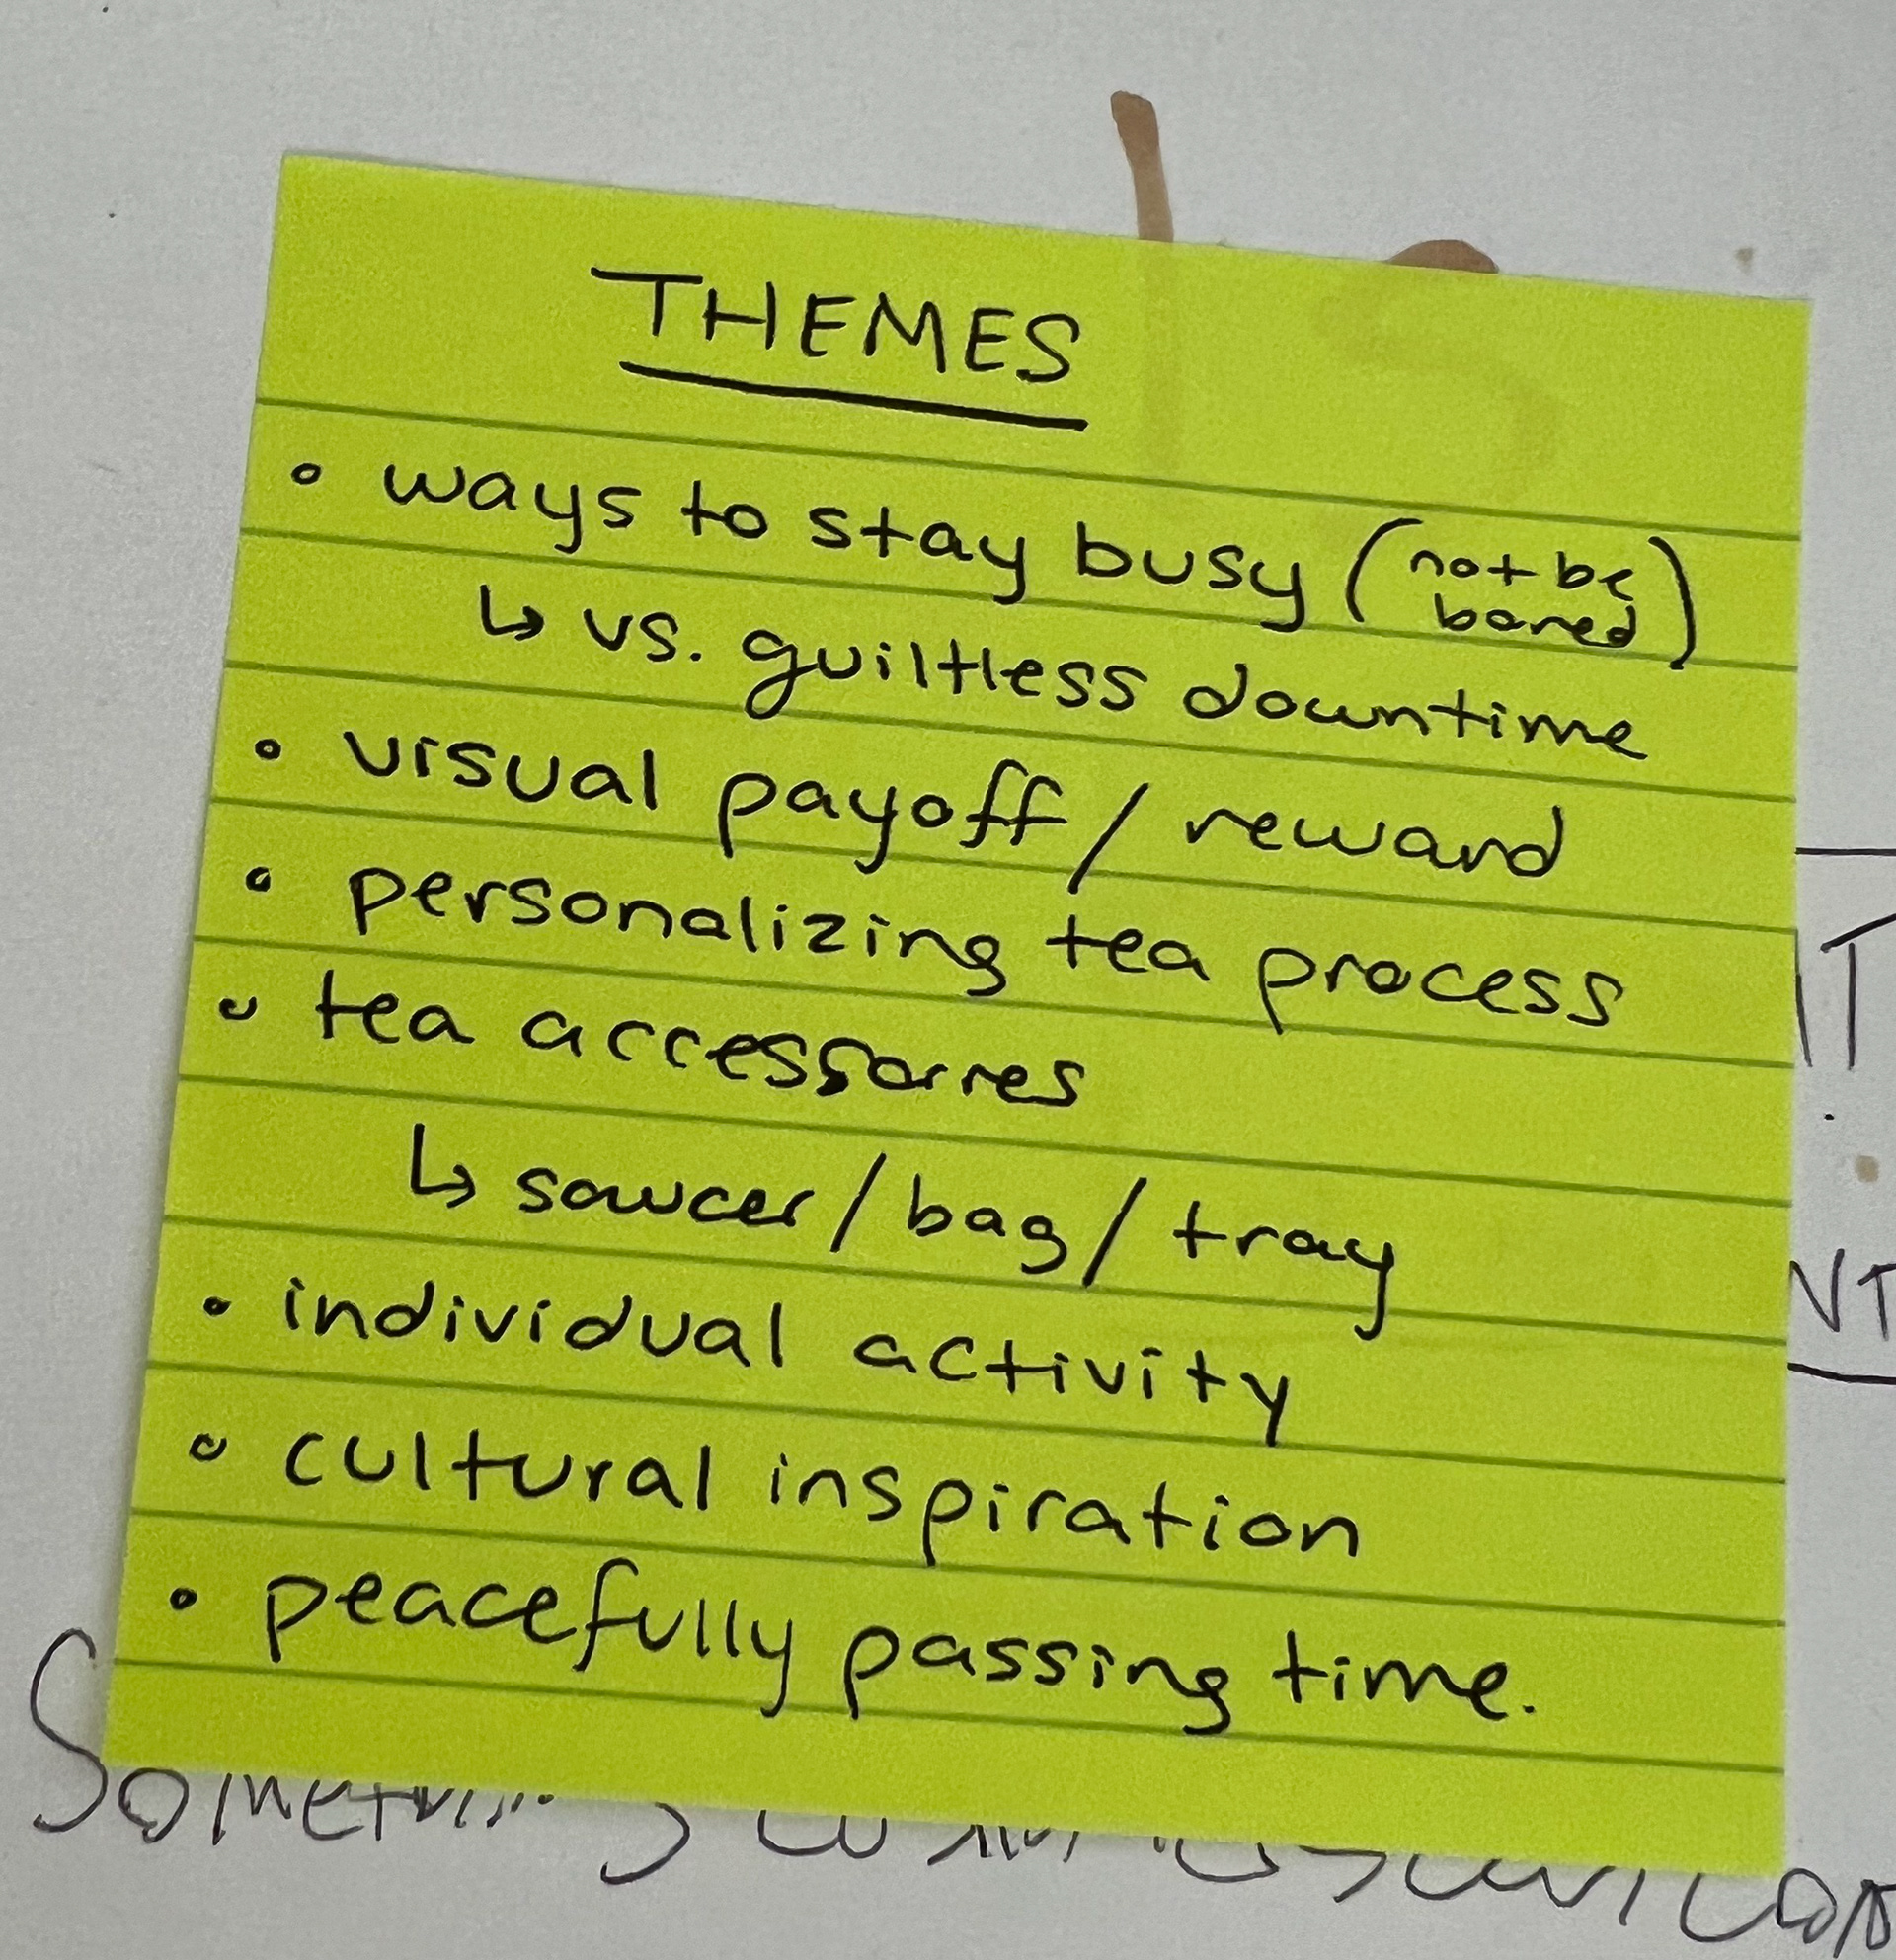 THEMES
• ways to stay busy (not be bored)
↳ vs. guiltless downtime
• visual payoff / reward
• personalizing tea process
• tea accessories
↳ saucer / bag / tray
• individual activity
• cultural inspiration
• peacefully passing time.